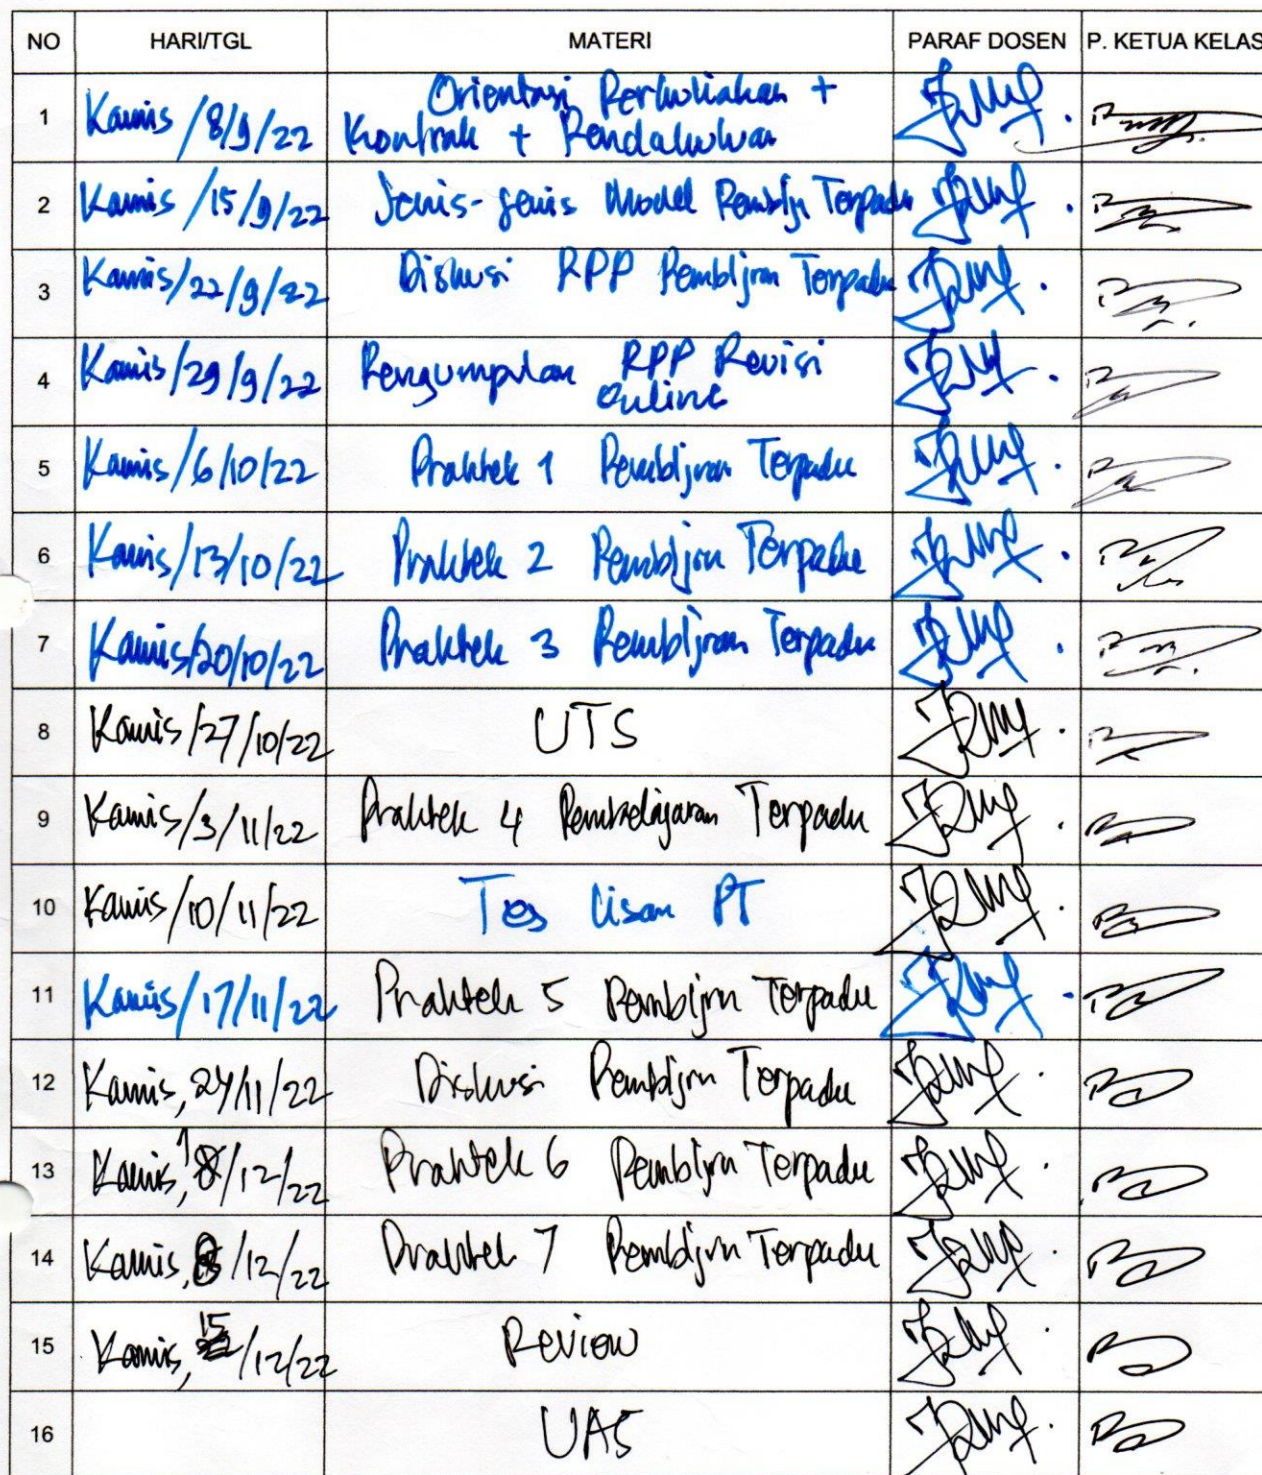 NO HARI/TGL MATERI PARAF DOSEN P. KETUA KELAS
1 Kamis /8/9/22 Orientasi Perkuliahan +
Kontrak + Pendahuluan
2 Kamis /15/9/22 Jenis-jenis Model Pemblj Terpadu
3 Kamis/22/9/22 Diskusi RPP Pembljran Terpadu
4 Kamis/29/9/22 Pengumpulan RPP Revisi
Online
5 Kamis/6/10/22 Praktek 1 Pembljran Terpadu
6 Kamis/13/10/22 Praktek 2 Pembljrn Terpadu
7 Kamis/20/10/22 Praktek 3 Pembljran Terpadu
8 Kamis/27/10/22 UTS
9 Kamis/3/11/22 Praktek 4 Pembelajaran Terpadu
10 Kamis/10/11/22 Tes Lisan PT
11 Kamis/17/11/22 Praktek 5 Pembljrn Terpadu
12 Kamis, 24/11/22 Diskusi Pembljrn Terpadu
13 Kamis, 1/12/22 Praktek 6 Pembljrn Terpadu
14 Kamis, 8/12/22 Praktek 7 Pembljrn Terpadu
15 Kamis, 15/12/22 Review
16 UAS